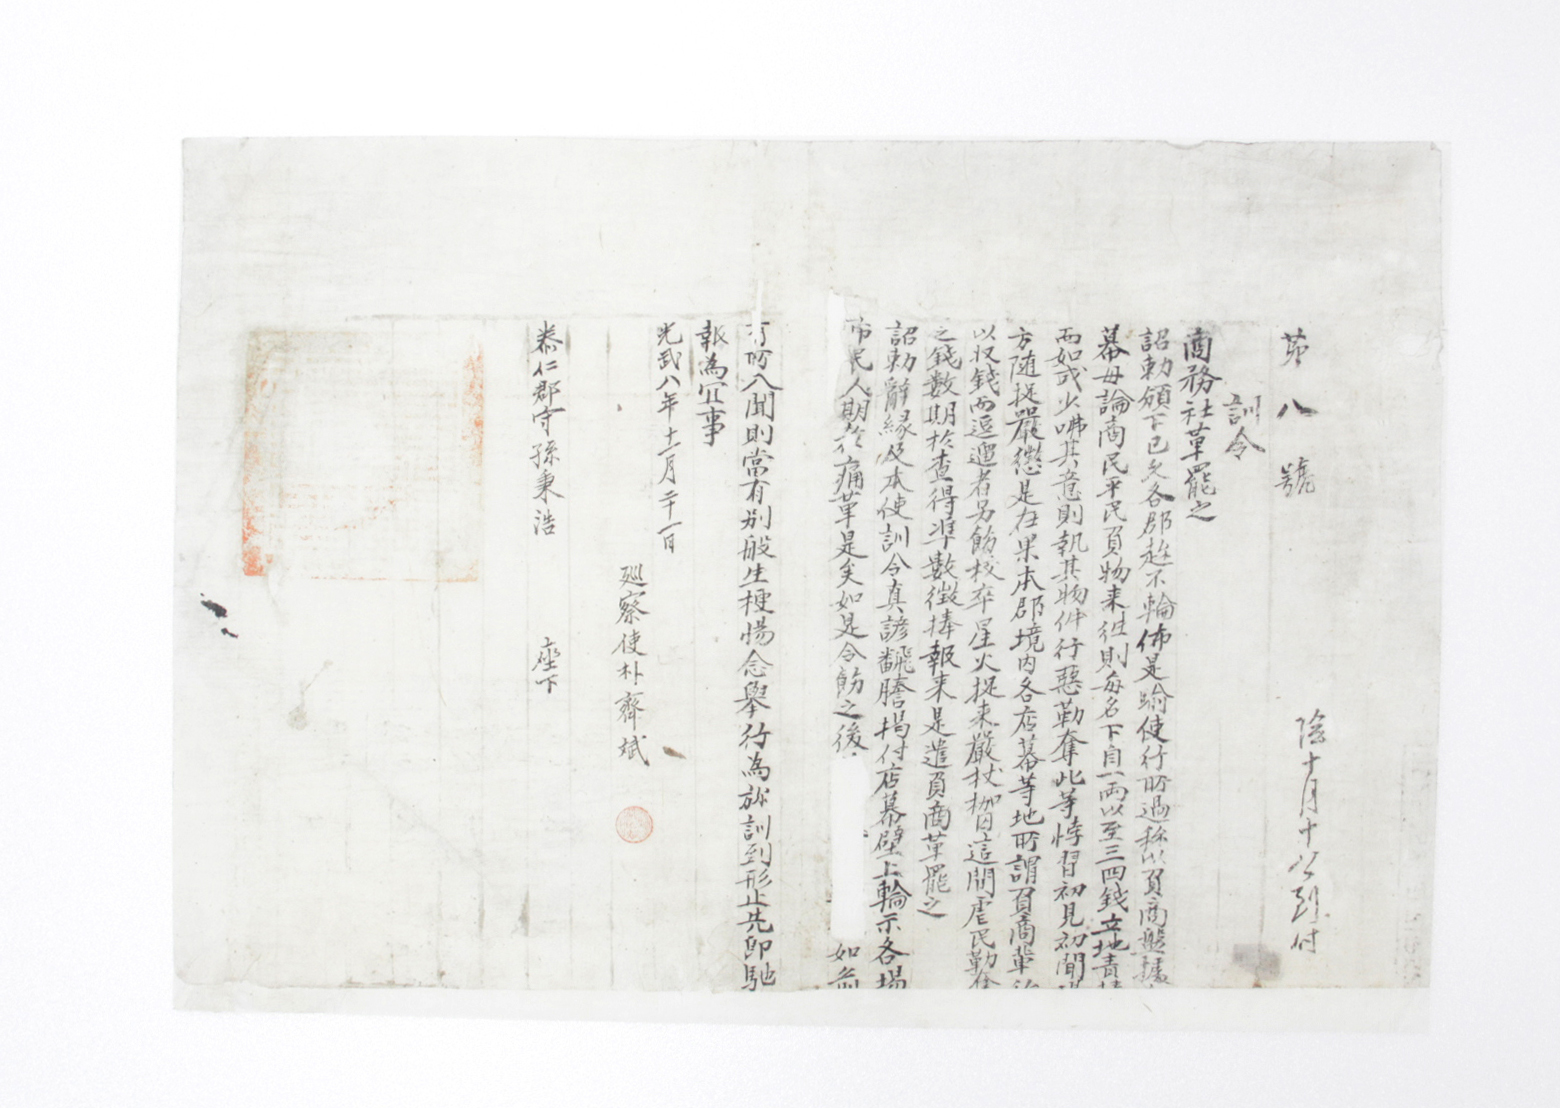 第八號
陰十月十八到付
訓令
商務社革罷之
詔勅頒下已久各郡趁不輪佈是喻使行所過稱以負商盤據
幕毋論商民平民負物来往則每名下自一兩以至三四錢立地責
而如或少咈其意則執其物件行惡勒奪此等悖習初見初聞
方随捉嚴懲是在果本郡境内各店幕等地所謂負商輩
以收錢而逗遛者另飭校卒星火捉来嚴杖枷囚這間虐民勒奪
之錢數期於查得準數徵捧報来是遣負商革罷之
詔勅辭緣及本使訓令真諺飜謄揭付店幕壁上輪示各場
市民人期於痛革是矣如是令飭之後 如前
有所入聞則當有别般生梗惕念舉行為旀訓到形止先即馳
報為宜事
光武八年十一月二十一日
廵察使朴齊斌
泰仁郡守孫秉浩 座下